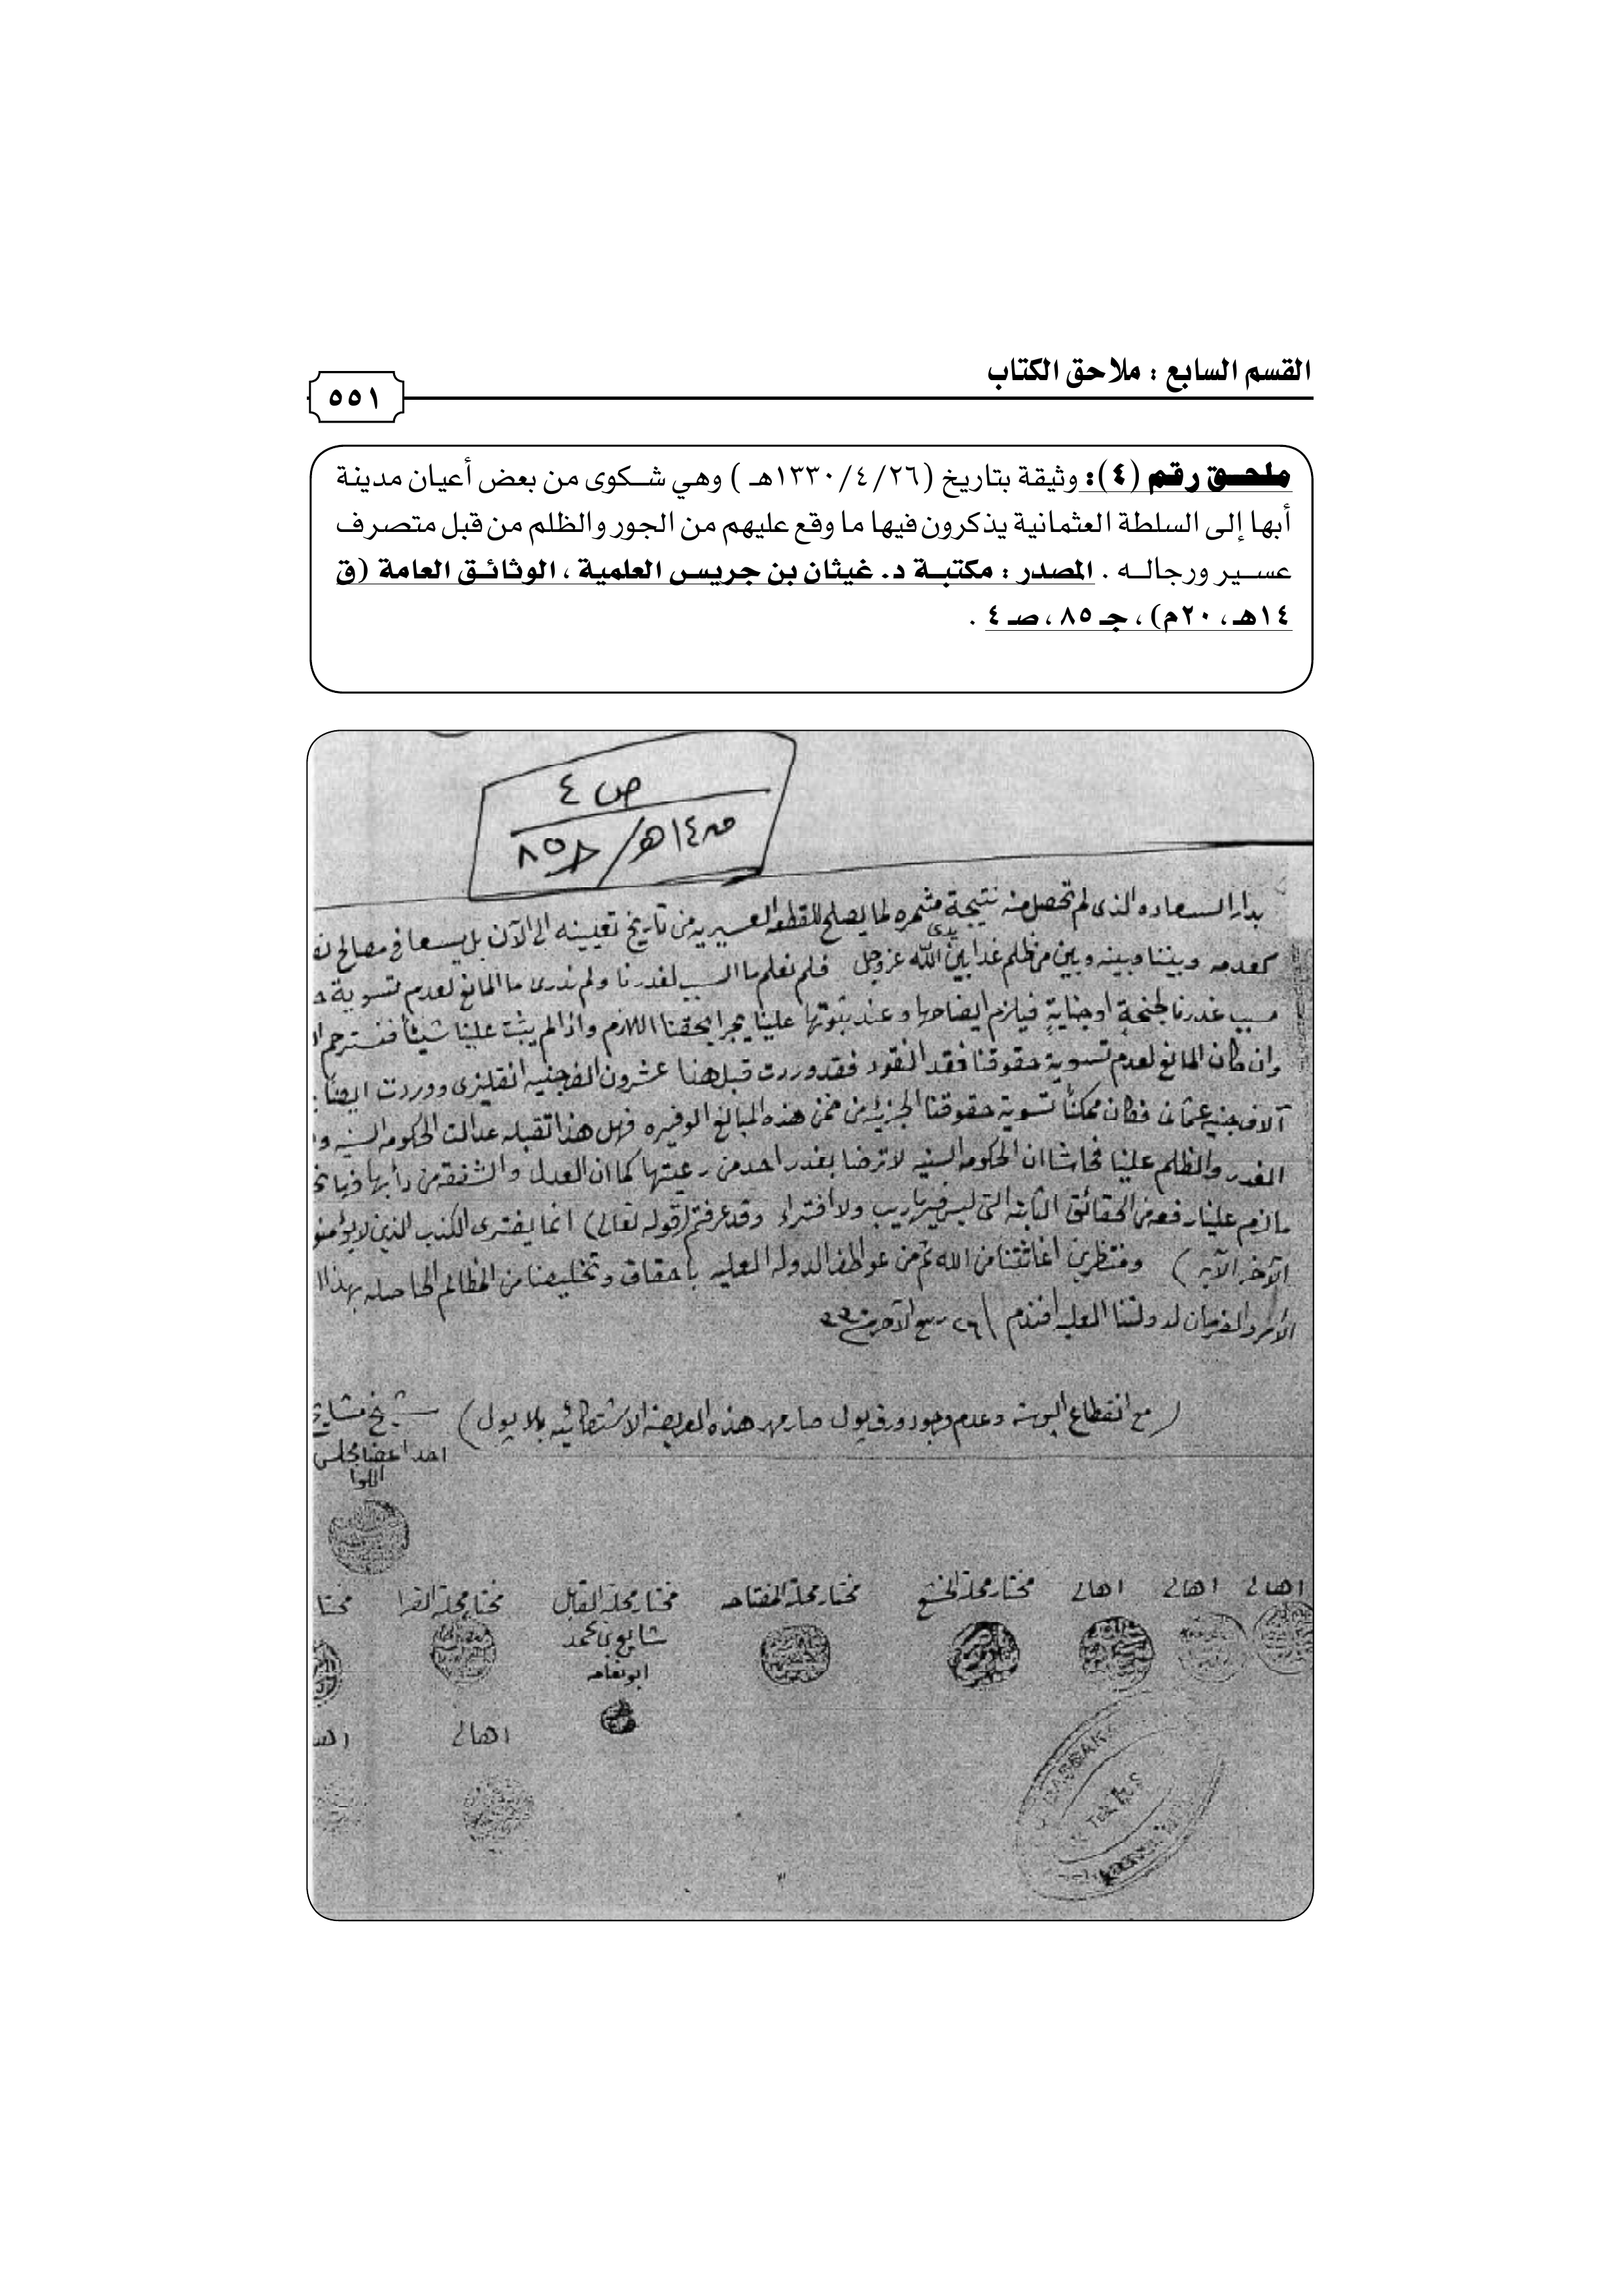 القسم السابع : ملاحق الكتاب
٥٥١
ملحـــق رقم (٤): وثيقة بتاريخ (١٣٣٠/٤/٢٦هـ ) وهي شــكوى من بعض أعيان مدينة
أبها إلى السلطة العثمانية يذكرون فيها ما وقع عليهم من الجور والظلم من قبل متصرف
عســير ورجالــه . المصدر : مكتبــة د. غيثان بن جريس العلمية ، الوثائـق العامة (ق
١٤هـ، ٢٠م) ، جـ ٨٥ ، صـ ٤ .
ص ٤
١٤هـ/ ٨٥
بدار السعاده الذى لم تحصل منه نتيجة مثمره لما يصلح للقطعه العسيريه من تاريخ تعيينه الى الآن بل يسعا فى مصالح
كعدمه وبيننا وبينه وبين من ظلم غدا بين يدى الله عز وجل فلم نعلم ما السبب لغدرنا ولم ندرى ما المانع لعدم تسوية
سبب غدرنا لجنحة او جناية فيلزم ايضاحها وعند ثبوتها علينا يجرا بحقنا اللازم واذا لم يثبت علينا شيئاً فنسترحم
وان كان المانع لعدم تسوية حقوقنا فقد النقود فقد وردت قبل هنا عشرون الف جنيه انقليزى ووردت ايضاً
آلاف جنيه عثمانى فكان ممكناً تسوية حقوقنا الجزئيه من ضمن هذه المبالغ الوفيره فهل هذا تقبله عدالت الحكومه السنيه
الغدر والظلم علينا فحاشا ان الحكومه السنيه لا ترضا بغدر احد من رعيتها كما ان العدل والشفقه من دأبها
ما لزم علينا رفعه من الحقائق الثابته التى ليس فيها ريب ولا افتراء وقد عرفتم (قوله تعالى) انما يفترى الكذب الذين لا يؤمنو
الآخر الآيه ) ومنتظرين اغاثتنا من الله ثم من عواطف الدوله العليه باحقاق وتخليصنا من المظالم الحاصله بهذا
الأمر والفرمان لدولتنا العليه افندم ٢٦ ربيع الآخر
( مع انقطاع البوسته وعدم وجود ورق بول صار مهر هذه العريضه الاشتكائيه بلا بول)
شيخ مشايخ
احد اعضا مجلس
اللوا
اهالى اهالى اهالى مختار محلة الخشع مختار محلة المفتاحه مختار محلة القابل مختار محلة القرا مختا
شايع بن محمد
ابو نقاحه
اهالى